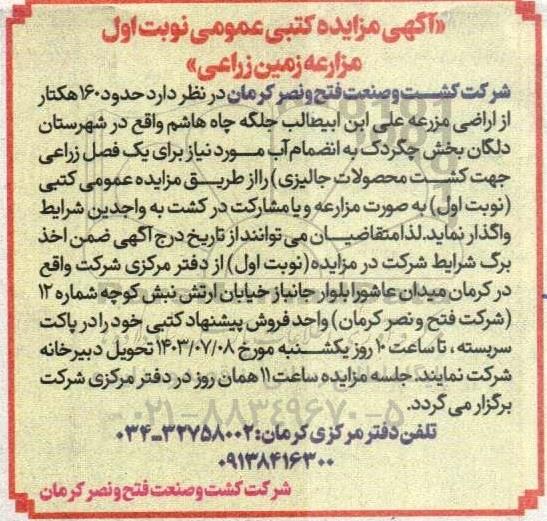 «آگهی مزایده کتبی عمومی نوبت اول
مزارعه زمین زراعی»
شرکت کشت و صنعت فتح و نصر کرمان در نظر دارد حدود ۱۶۰ هکتار
از اراضی مزرعه علی ابن ابیطالب جلگه چاه هاشم واقع در شهرستان
دلگان بخش چگردک به انضمام آب مورد نیاز برای یک فصل زراعی
جهت کشت محصولات جالیزی) را از طریق مزایده عمومی کتبی
(نوبت اول) به صورت مزارعه و یا مشارکت در کشت به واجدین شرایط
واگذار نماید. لذا متقاضیان می توانند از تاریخ درج آگهی ضمن اخذ
برگ شرایط شرکت در مزایده (نوبت اول) از دفتر مرکزی شرکت واقع
در کرمان میدان عاشورا بلوار جانباز خیابان ارتش نبش کوچه شماره ۱۲
(شرکت فتح و نصر کرمان) واحد فروش پیشنهاد کتبی خود را در پاکت
سربسته ، تا ساعت ۱۰ روز یکشنبه مورخ ۱۴۰۳/۰۷/۰۸ تحویل دبیرخانه
شرکت نمایند. جلسه مزایده ساعت ۱۱ همان روز در دفتر مرکزی شرکت
برگزار می گردد.
۰۲۱-۸۸۳۴۹۶۷۰-۵
تلفن دفتر مرکزی کرمان: ۳۲۷۵۸۰۰۲-۰۳۴
۰۹۱۳۸۴۱۶۳۰۰
شرکت کشت و صنعت فتح و نصر کرمان